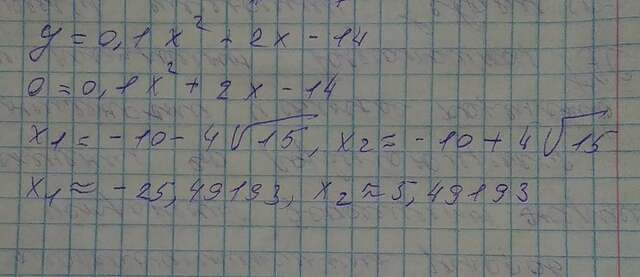 y = 0,1x² - 2x - 14
0 = 0,1x² + 2x - 14
x₁ = -10 - 4√15, x₂ = -10 + 4√15
x₁ ≈ -25,49193, x₂ ≈ 5,49193